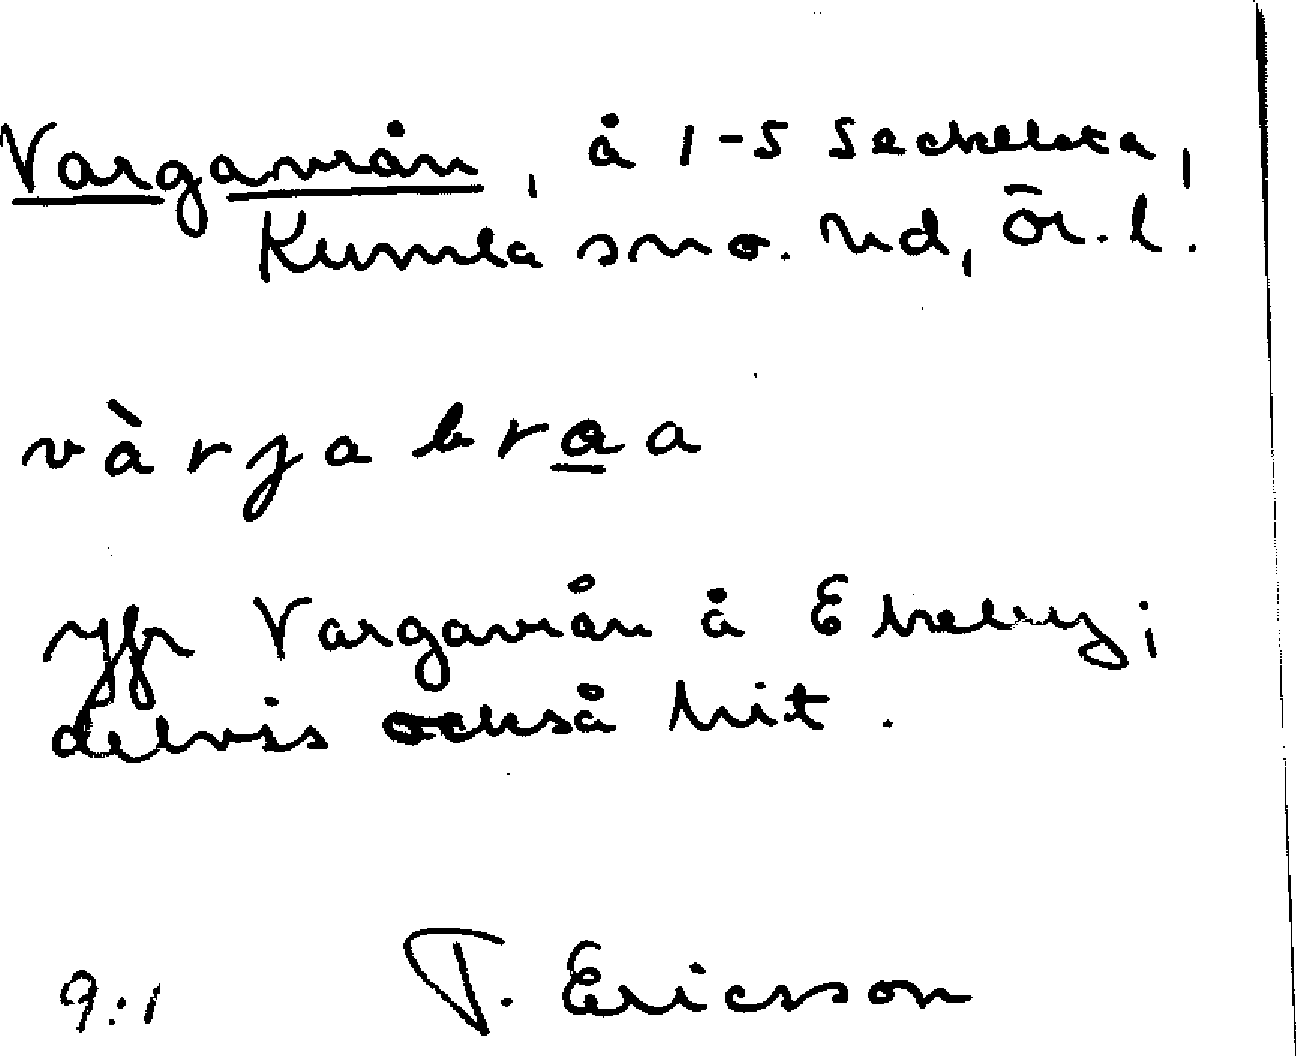 Vargavrån, å 1-5 Seckelsta,
Kumla sn o. hd, Ör. l.
vàrjabraa
Jfr Vargavrån å Ekeby;
delvis också hit.
9:1 T. Ericsson